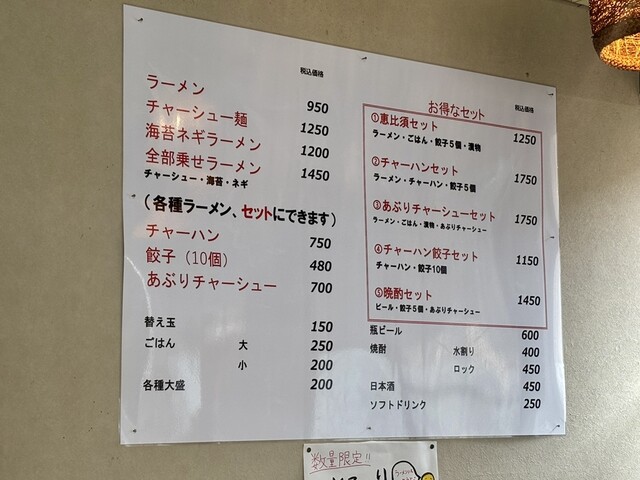 税込価格
ラーメン 950
チャーシュー麺 1250
海苔ネギラーメン 1200
全部乗せラーメン 1450
チャーシュー・海苔・ネギ
(各種ラーメン、セットにできます)
チャーハン 750
餃子(10個) 480
あぶりチャーシュー 700
替え玉 150
ごはん 大 250
小 200
各種大盛 200
お得なセット 税込価格
①恵比須セット 1250
ラーメン・ごはん・餃子5個・漬物
②チャーハンセット 1750
ラーメン・チャーハン・餃子5個
③あぶりチャーシューセット 1750
ラーメン・ごはん・漬物・あぶりチャーシュー
④チャーハン餃子セット 1150
チャーハン・餃子10個
⑤晩酌セット 1450
ビール・餃子5個・あぶりチャーシュー
瓶ビール 600
焼酎 水割り 400
ロック 450
日本酒 450
ソフトドリンク 250
数量限定!!